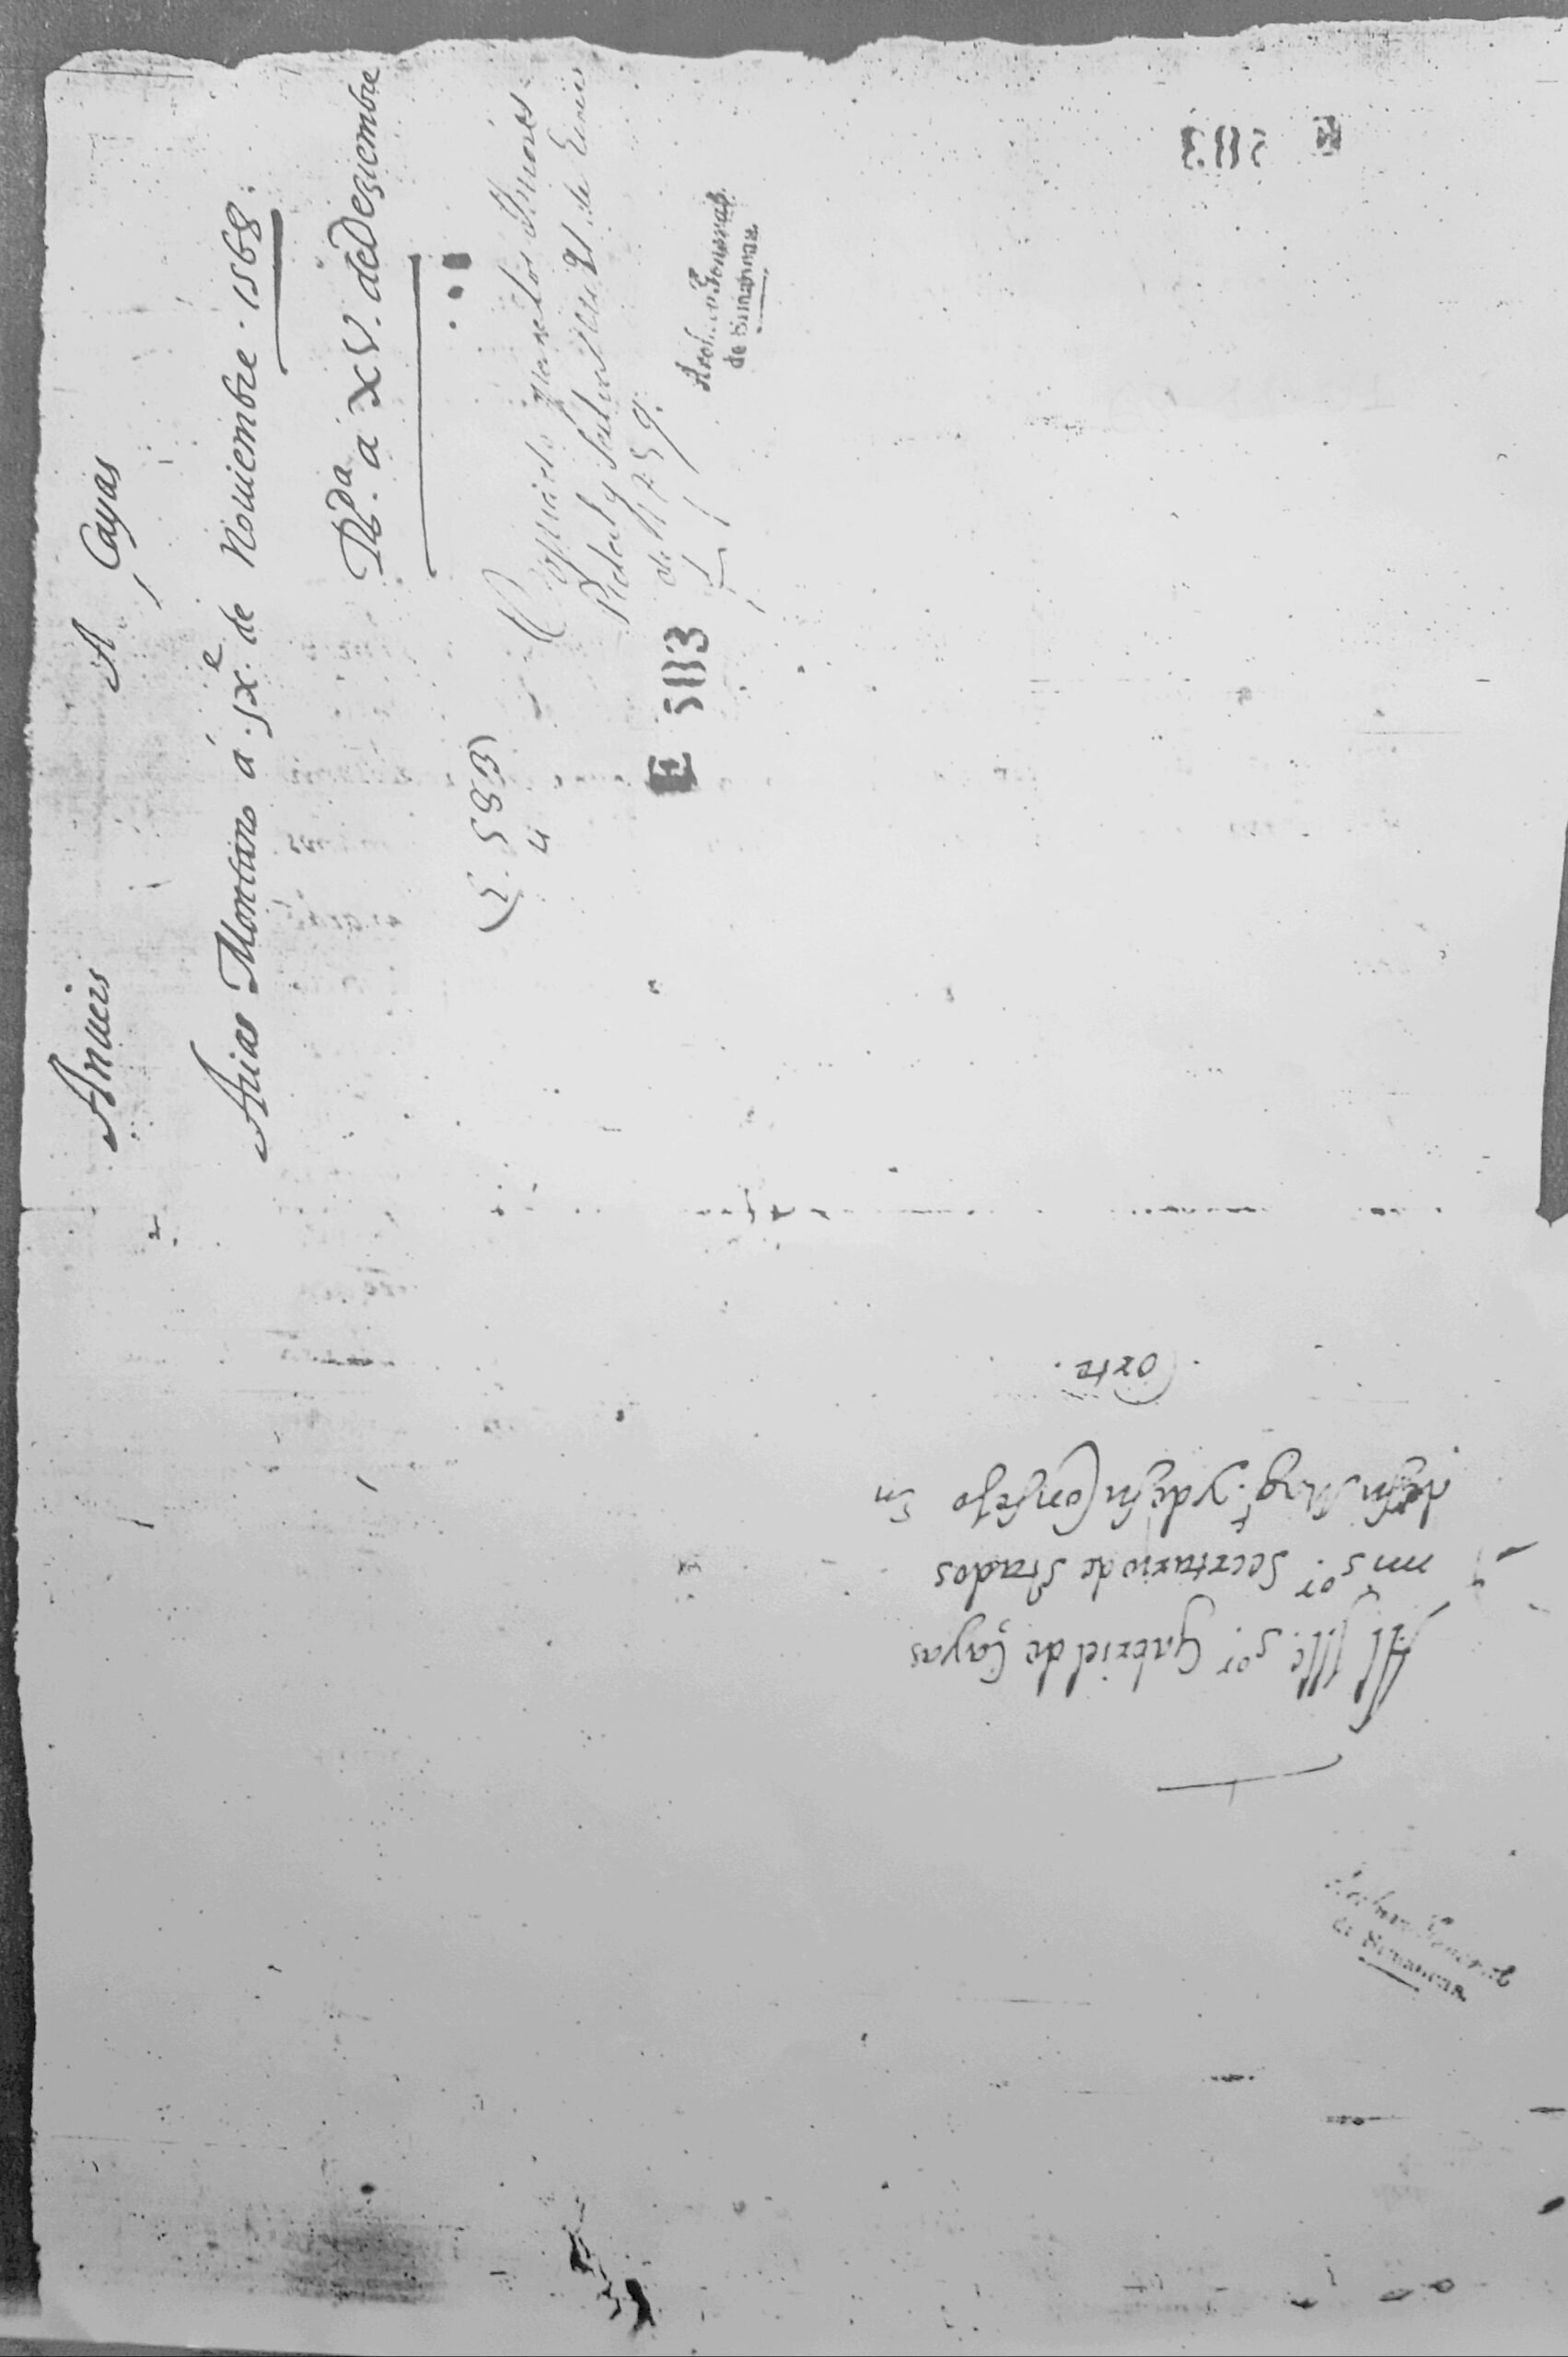 Anveis A Çayas
Arias Montano á .jx.e de Nouiembre . 1568.
Rda. a XV. de Deziembre
Copiado para los Srnores
Pidal y Salvá hoi 21 de Enero
de 1859.
(L. 583)
4
E 583
Archivo General
de Simancas
E 583
Al Ille. Sor. Gabriel de Çayas
mi Sor. Secretario de Stados
de su Magt. y de su Consejo En
Corte.
Archivo General
de Simancas